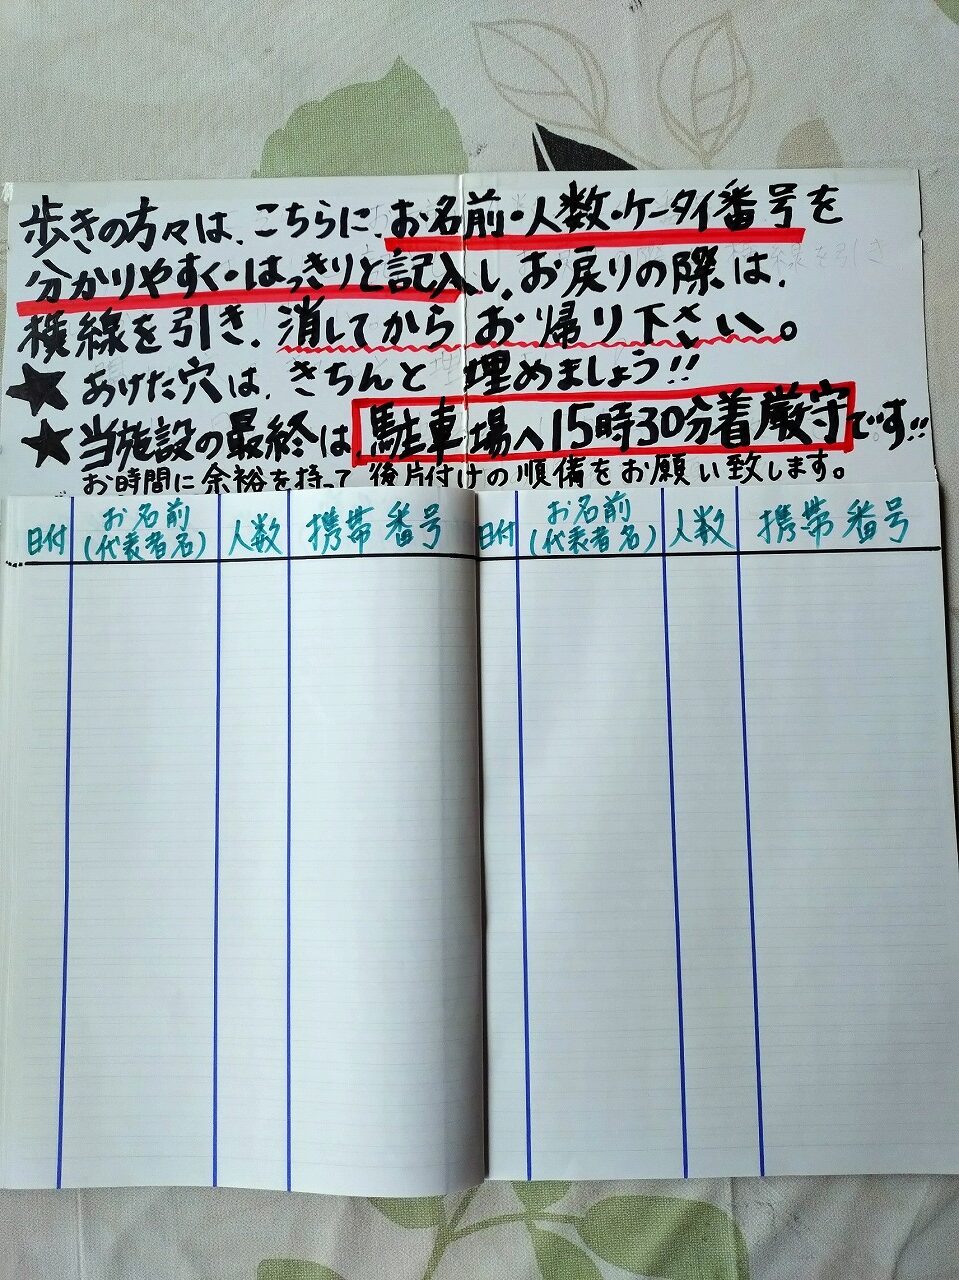 歩きの方々は、こちらに、お名前・人数・ケータイ番号を
分かりやすく・はっきりと記入し、お戻りの際は、
横線を引き、消してからお帰り下さい。
★あけた穴は、きちんと埋めましょう!!
★当施設の最終は、駐車場へ15時30分着厳守です!!
お時間に余裕を持って後片付けの順備をお願い致します。
日付 お名前(代表者名) 人数 携帯番号
日付 お名前(代表者名) 人数 携帯番号